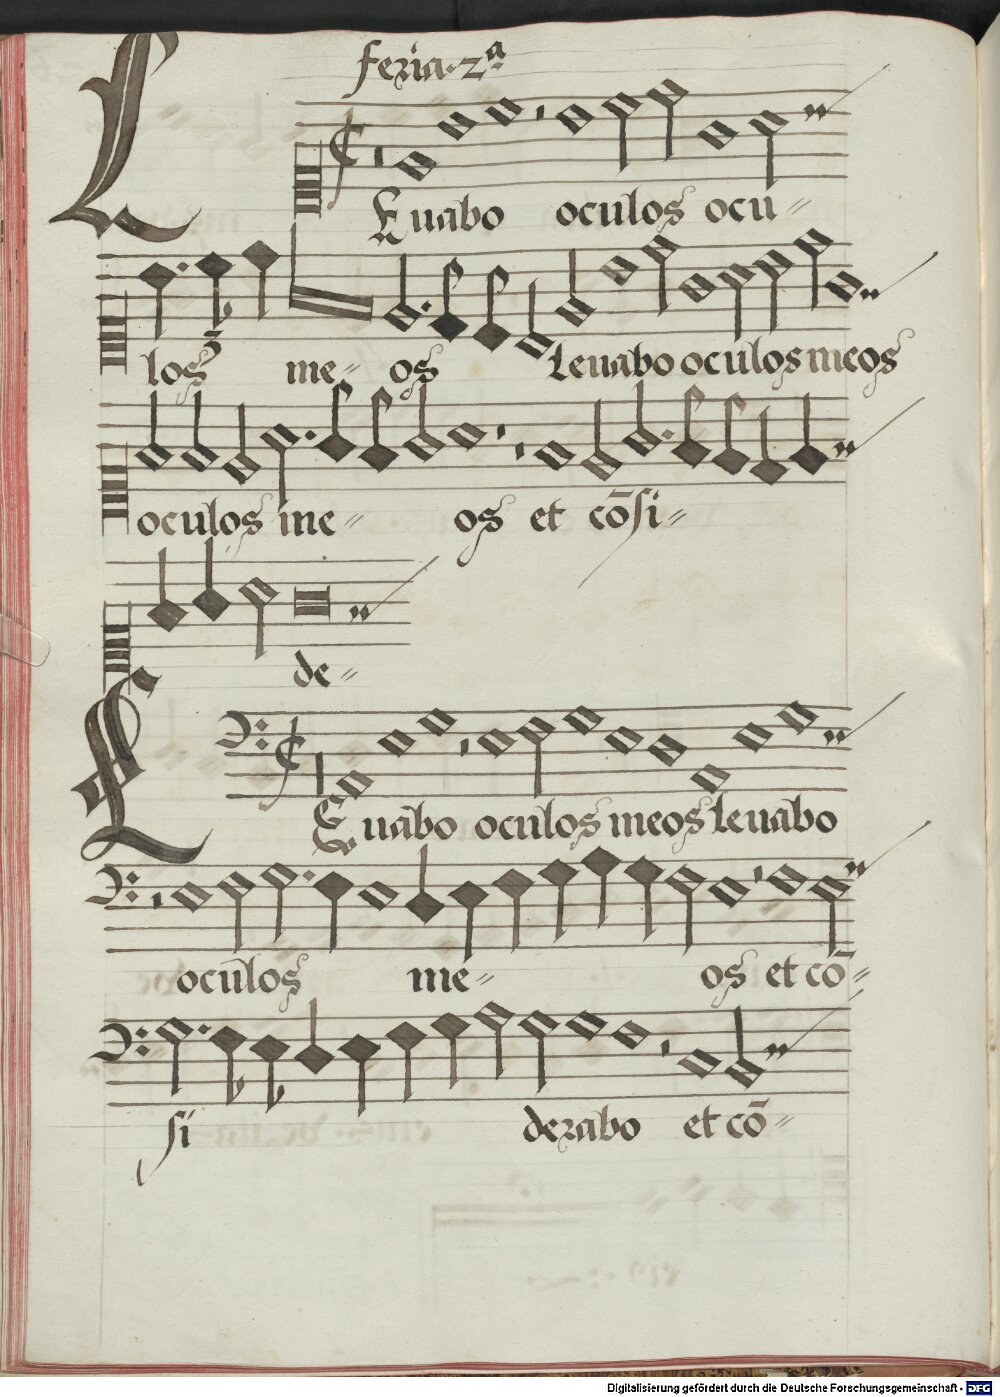 feria · 2ª
LEuabo oculos ocu-
los me- os Leuabo oculos meos
oculos me- os et cōsi-
de-
LEuabo oculos meos leuabo
oculos me- os et cō-
si derabo et cō-
Digitalisierung gefördert durch die Deutsche Forschungsgemeinschaft - DFG